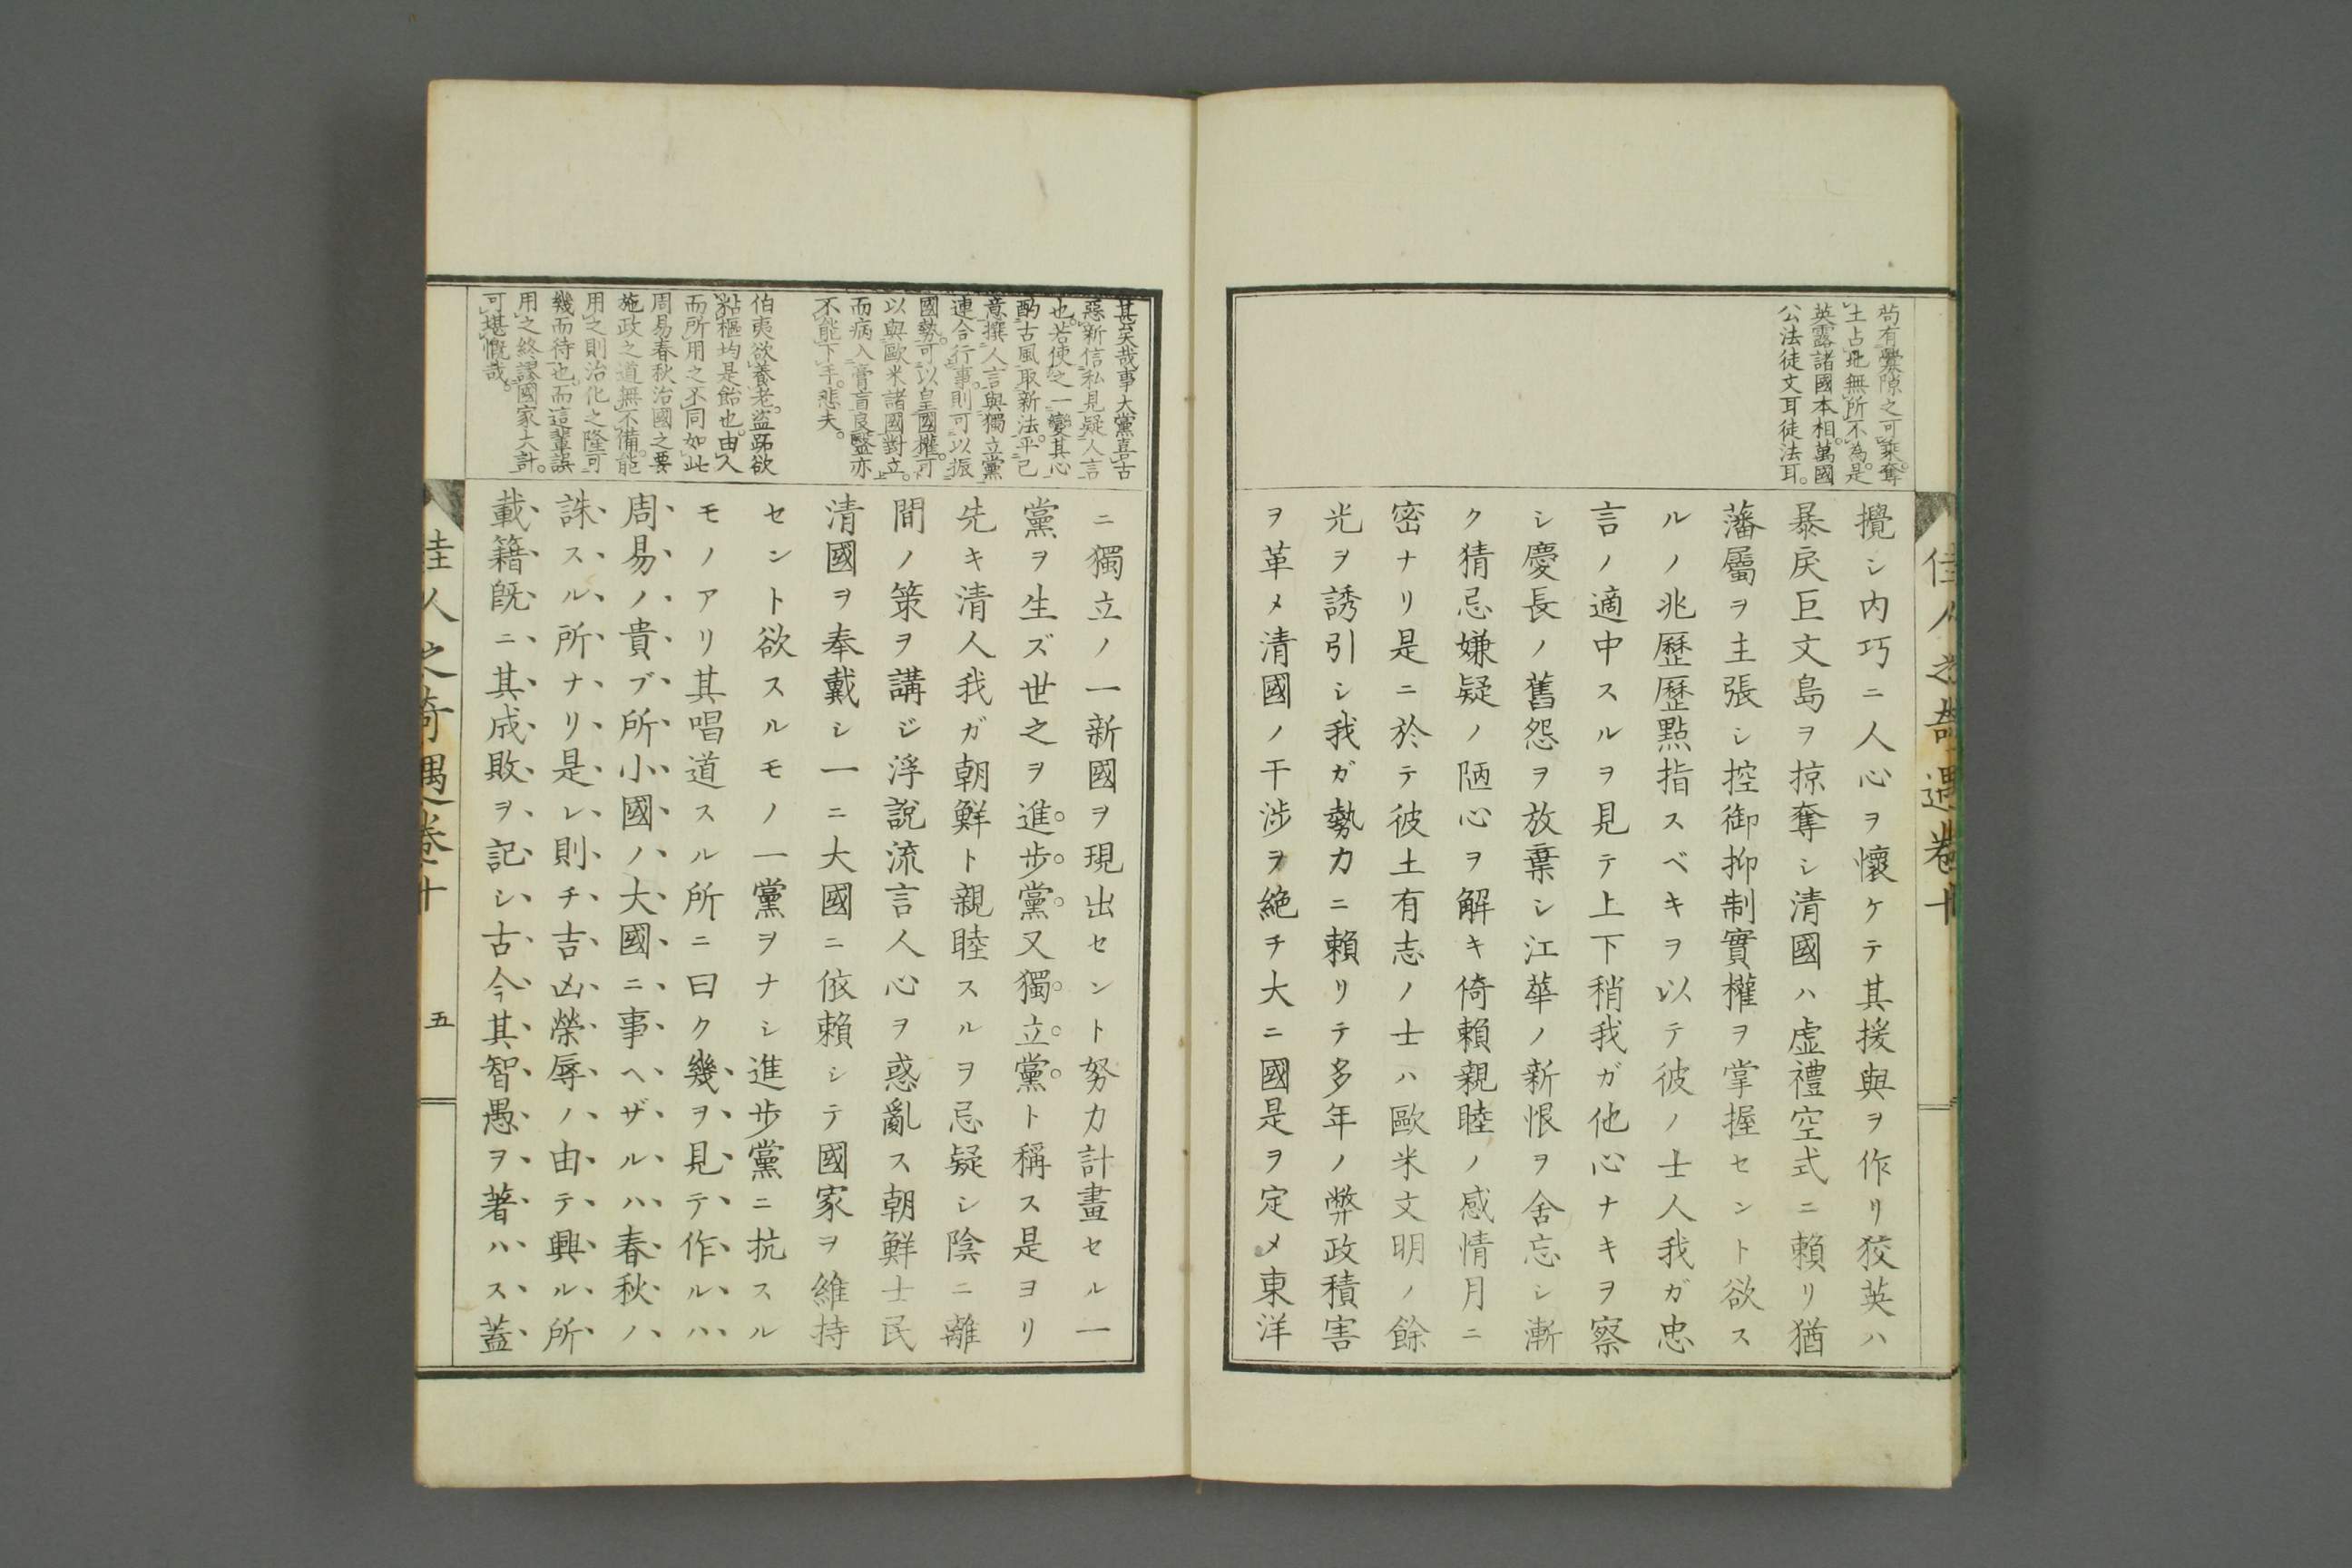 苟有釁隙之可乘奪
土占地無所不為是
英露諸國本相萬國
公法徒文耳徒法耳
攪シ内巧ニ人心ヲ懷ケテ其援與ヲ作リ狡英ハ
暴戻巨文島ヲ掠奪シ清國ハ虚禮空式ニ賴リ猶
藩屬ヲ主張シ控御抑制實權ヲ掌握セント欲ス
ルノ兆歷歷點指スベキヲ以テ彼ノ士人我ガ忠
言ノ適中スルヲ見テ上下稍我ガ他心ナキヲ察
シ慶長ノ舊怨ヲ放棄シ江華ノ新恨ヲ舍忘シ漸
ク猜忌嫌疑ノ陋心ヲ解キ倚賴親睦ノ感情月ニ
密ナリ是ニ於テ彼土有志ノ士ハ歐米文明ノ餘
光ヲ誘引シ我ガ勢力ニ賴リテ多年ノ弊政積害
ヲ革メ清國ノ干涉ヲ絶チ大ニ國是ヲ定メ東洋
佳人之奇遇卷十
甚矣哉事大黨喜古
惡新信私見疑人言
也。若使之一變其心
酌古風取新法。平己
意撰人言與獨立黨
連合行事。則可以振
國勢。可以皇國權。可
以與歐米諸國對立。
而病入膏肓良醫亦
不能下手。悲夫。
伯夷欲養老。盜跖欲
黏樞均是飴也。由人
而所用之不同如此
周易春秋治國之要
施政之道無不備。能
用之則治化之隆可
幾而待也。而這輩誤
用之終謬國家大計。
可堪慨哉。
ニ獨立ノ一新國ヲ現出セント努力計畫セル一
黨ヲ生ズ世之ヲ進步黨又獨立黨ト稱ス是ヨリ
先キ清人我ガ朝鮮ト親睦スルヲ忌疑シ陰ニ離
間ノ策ヲ講ジ浮說流言人心ヲ惑亂ス朝鮮士民
清國ヲ奉戴シ一ニ大國ニ依賴シテ國家ヲ維持
セント欲スルモノ一黨ヲナシ進步黨ニ抗スル
モノアリ其唱道スル所ニ曰ク幾ヲ見テ作ルハ
周易ノ貴ブ所小國ノ大國ニ事ヘザルハ春秋ノ
誅スル所ナリ是レ則チ吉凶榮辱ノ由テ興ル所
載籍既ニ其成敗ヲ記シ古今其智愚ヲ著ハス蓋
佳人之奇遇卷十
五